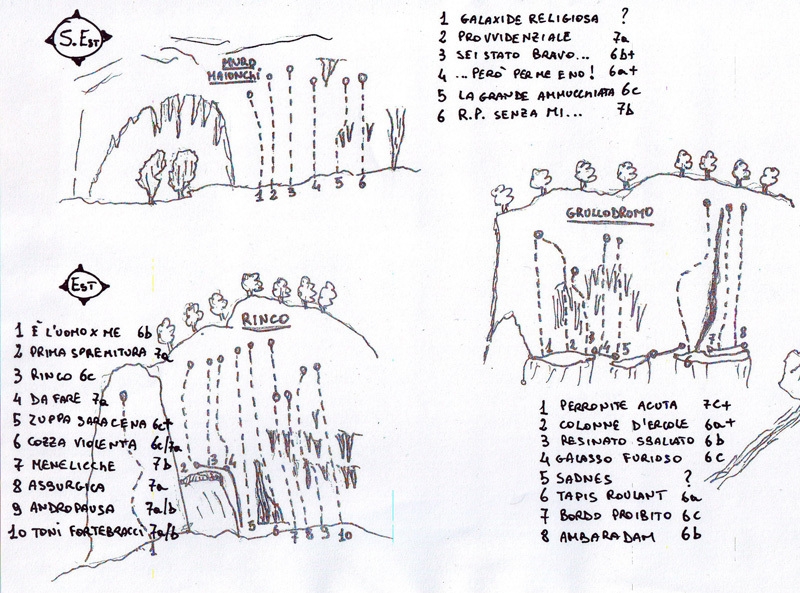 S. EST
MURO
MAIONCHI
1 2 3 4 5 6
1 GALAXIDE RELIGIOSA ?
2 PROVVIDENZIALE 7a
3 SEI STATO BRAVO... 6b+
4 ...PERÒ PER ME È NO! 6a+
5 LA GRANDE AMMUCCHIATA 6c
6 R.P. SENZA MI... 7b
EST
RINCO
1 È L'UOMO X ME 6b
2 PRIMA SPREMITURA 7a
3 RINCO 6c
4 DA FARE 7a
5 ZUPPA SARACENA 6c+
6 COZZA VIOLENTA 6c/7a
7 MENELICCHE 7b
8 ASSURGICA 7a
9 ANDROPAUSA 7a/b
10 TONI FORTEBRACCI 7a/b
2 3 4
5 6 7 8 9 10
1
GRULLODROMO
1 2 3 4 5 6 7 8
1 PERRONITE ACUTA 7c+
2 COLONNE D'ERCOLE 6a+
3 RESINATO SBALLATO 6b
4 GALASSO FURIOSO 6c
5 SADNES ?
6 TAPIS ROULANT 6a
7 BORDO PROIBITO 6c
8 AMBARADAM 6b